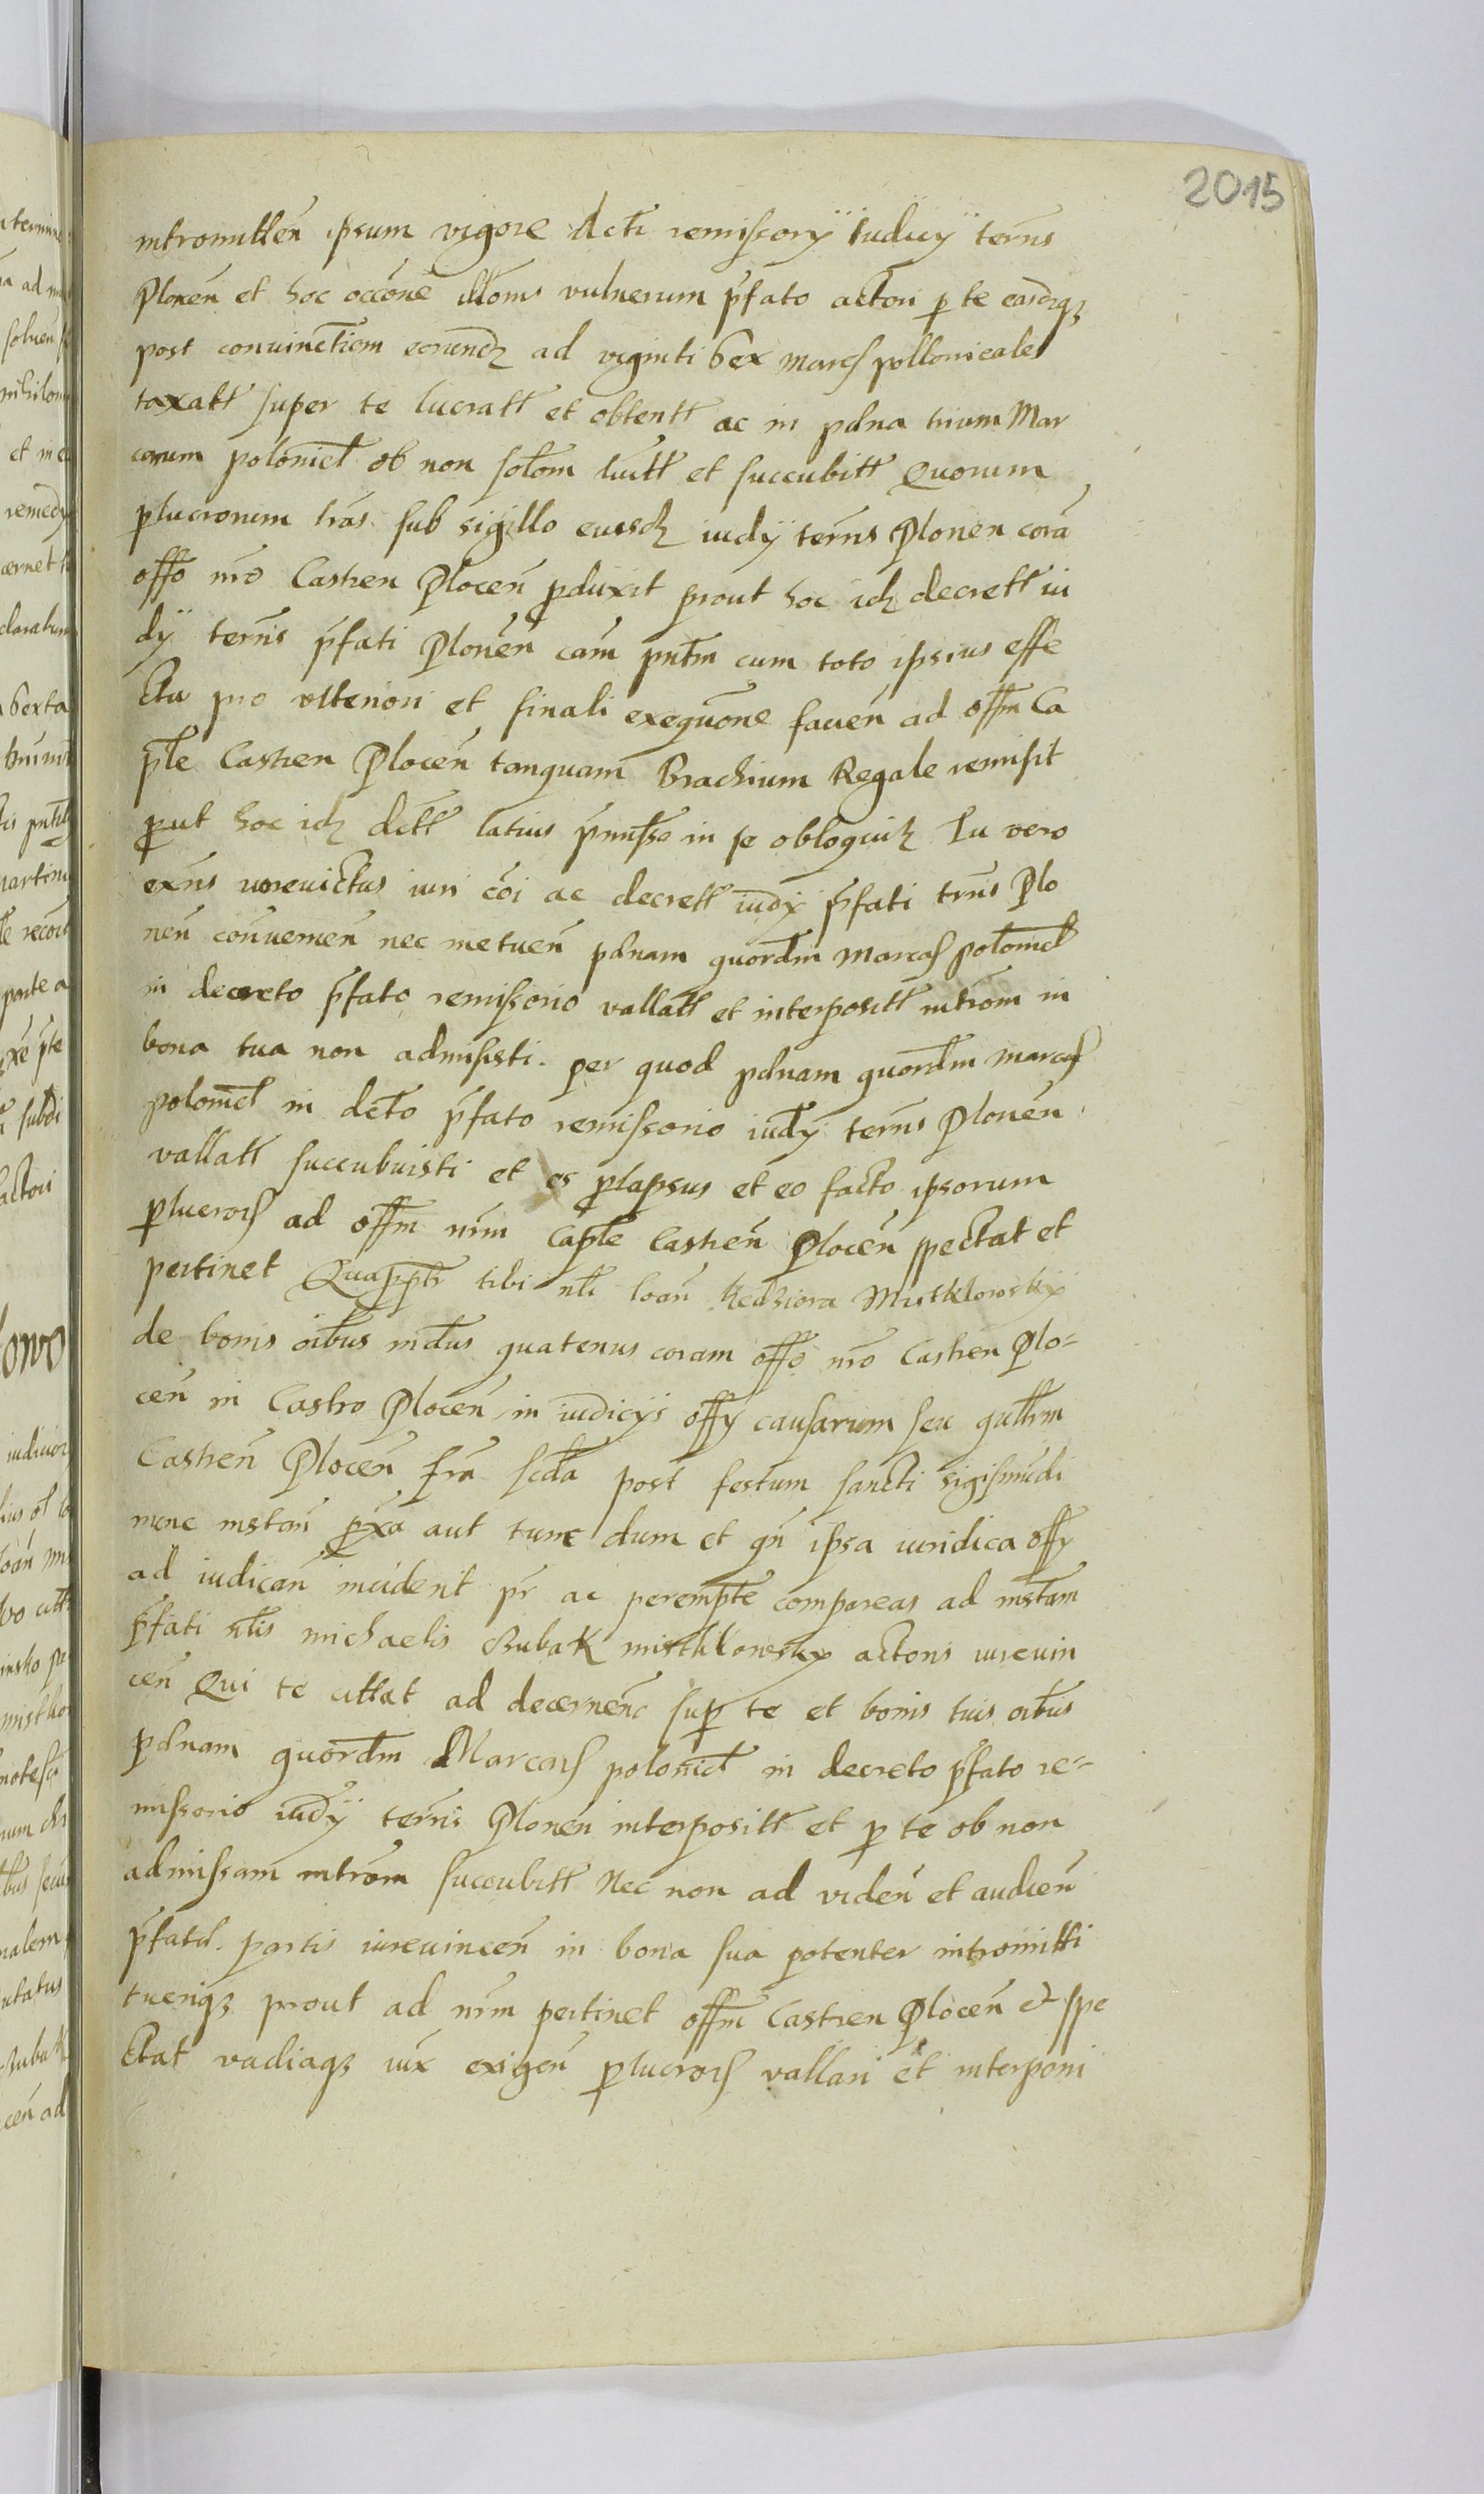 2015
intromitten̄ ipsum vigore dcti remissorÿ iudicÿ terr̄ns
Plonen̄ et hoc occōne illoms vulnerum p̄fato actori p te easdēqȝ
post conuinctiom eorundȝ ad viginti sex marcs pollonicales
taxatt super te lucratt et obtentt ac in pdna trium Mar
carum polonicl ob non solom luitt et succubitt Quorum
plucrorum lrās sub sigillo eiusdȝ iudÿ terr̄ns Plonen corā
offō nrō Castren Plocen̄ pduxit prout hoc idȝ decrett iu
dÿ terr̄ns p̄fati Plonēn cam̄ pn̄tm cum toto ipsius effe
ctu pro vlteriori et finali exequōne facien̄ ad offm̄ Ca
ple Castren Plocen̄ tanquam Brachium Regale remisit
put hoc idȝ dctt latius p̄missō in se obloquitȝ Tu vero
exn̄s iureuictus iuri cōi ac decrett iudÿ p̄fati trr̄ns Plo
nen̄ conuenien̄ nec metuen̄ pdnam quordm marcaȿ polonicl
in decreto p̄fato remissorio vallatt et interpositt intrōm in
bona tua non admisisti. per quod pdnam quordm marcaȿ
polonicl in dcto p̄fato remissorio iudÿ terr̄ns Plonēn
vallatt succubuisti et es plapsus et eo facto ipsorum
plucrorȿ ad offm̄ nrm̄ Caple Castren̄ Plocen̄ spectat et
pertinet Quapptr tibi nli Ioan̄ Kedziora Mistklowsky
de bonis oib̄us mdtus quatenus coram offō nrō Castren Plo=
cen̄ in Castro Plocen̄ in iudicÿs offÿ causarum seu qultrm
Castren̄ Plocen̄ frā scda post festum sancti sigismūdi
nunc instan̄ pxā aut tunc dum et qn̄ ipsa iuridica offÿ
ad iudican̄ inciderit pr̄ ac perempte compareas ad instam
p̄fati nlis michaelis Rubak misthkowsky actoris iureuin
cen̄ Qui te cittat ad decernen̄ sup te et bonis tuis oib̄us
pdnam quordm Marcarȿ polonicl in decreto p̄fato re=
missorio iudÿ terr̄ns Plonen̄ interpositt et p te ob non
admissam intrōm succubitt Nec non ad viden̄ et audien̄
p̄fatȩ partis iureuincen̄ in bona sua potenter intromitti
tueriqȝ prout ad nrm̄ pertinet offm̄ Castren Plocen̄ et spe
ctat vadiaqȝ iux̄ exigen̄ plucrorȿ vallari et interponi